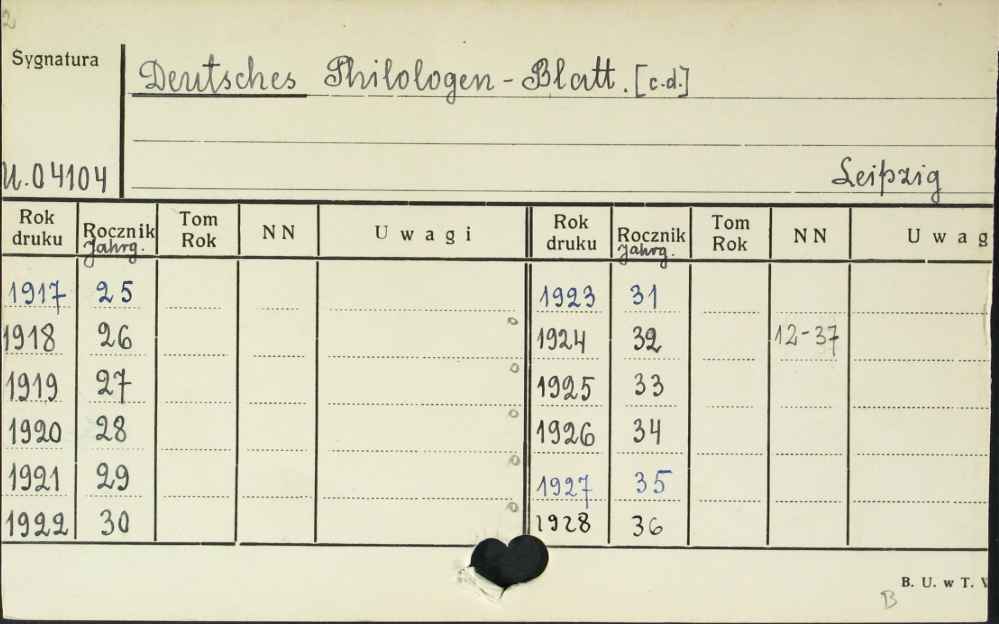 2
Sygnatura
Deutsches Philologen-Blatt. [c.d.]
U.04104
Leipzig
Rok druku Rocznik Jahrg. Tom Rok NN Uwagi Rok druku Rocznik Jahrg. Tom Rok NN Uwag
1917 25 1923 31
1918 26 o 1924 32 12-37
1919 27 o 1925 33
1920 28 o 1926 34
1921 29 o 1927 35
1922 30 o 1928 36
B. U. w T.
B